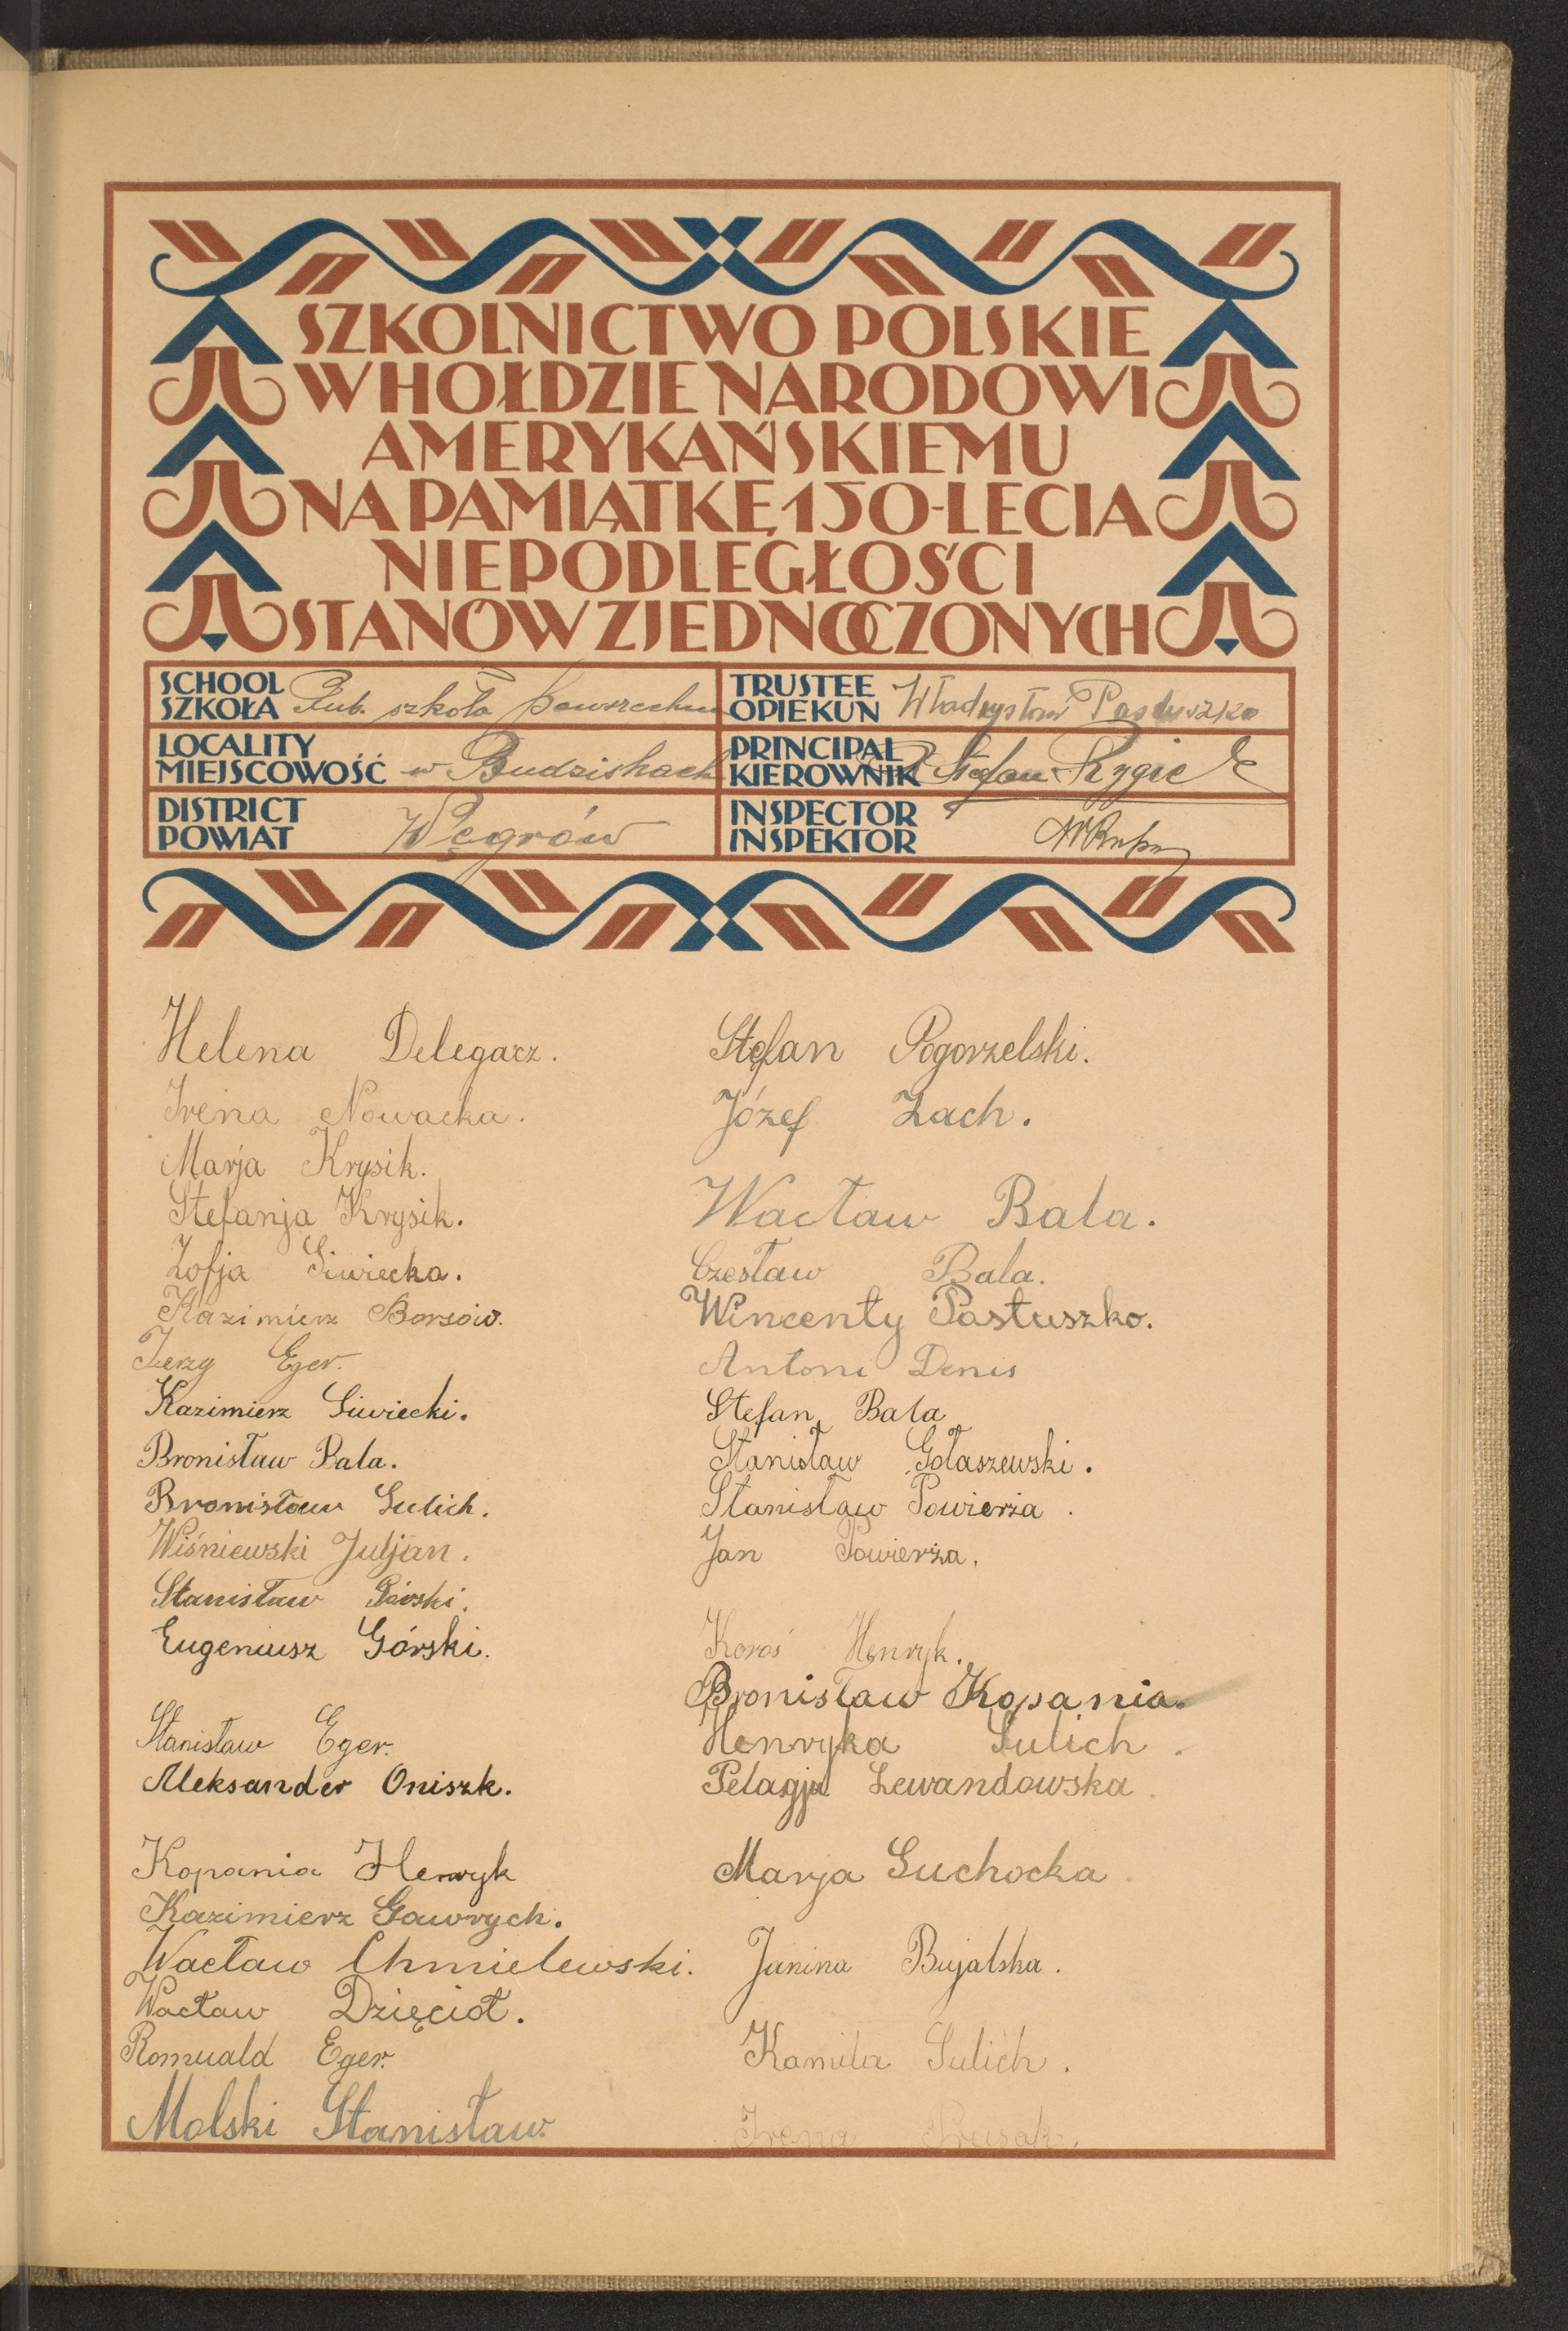 SZKOLNICTWO POLSKIE
W HOŁDZIE NARODOWI
AMERYKAŃSKIEMU
NA PAMIĄTKĘ 150-LECIA
NIEPODLEGŁOŚCI
STANÓW ZJEDNOCZONYCH
SCHOOL
SZKOŁA Pub. szkoła powszechna
TRUSTEE
OPIEKUN Władysław Pastuszko
LOCALITY
MIEJSCOWOŚĆ w Budziskach
PRINCIPAL
KIEROWNIK Stefan Rygiel
DISTRICT
POWIAT Węgrów
INSPECTOR
INSPEKTOR
Helena Delegacz.
Irena Nowacka.
Marja Krysik.
Stefanja Krysik.
Zofja Siwiecka.
Kazimierz Borsów.
Jerzy Eger.
Kazimierz Siwiecki.
Bronisław Bala.
Bronisław Sulich.
Wiśniewski Juljan.
Stanisław Górski.
Eugeniusz Górski.
Stanisław Eger.
Aleksander Oniszk.
Kopania Henryk
Kazimierz Gawrych.
Wacław Chmielewski.
Wacław Dzięcioł.
Romuald Eger.
Molski Stanisław.
Stefan Pogorzelski.
Józef Zach.
Wacław Bala.
Czesław Bala.
Wincenty Pastuszko.
Antoni Denis
Stefan Bala
Stanisław Gołaszewski.
Stanisław Powierża.
Jan Powierża.
Koroś Henryk.
Bronisław Kopania.
Henryka Sulich.
Pelagja Lewandowska.
Marja Suchocka.
Janina Bujalska.
Kamila Sulich.
Irena Prusak.